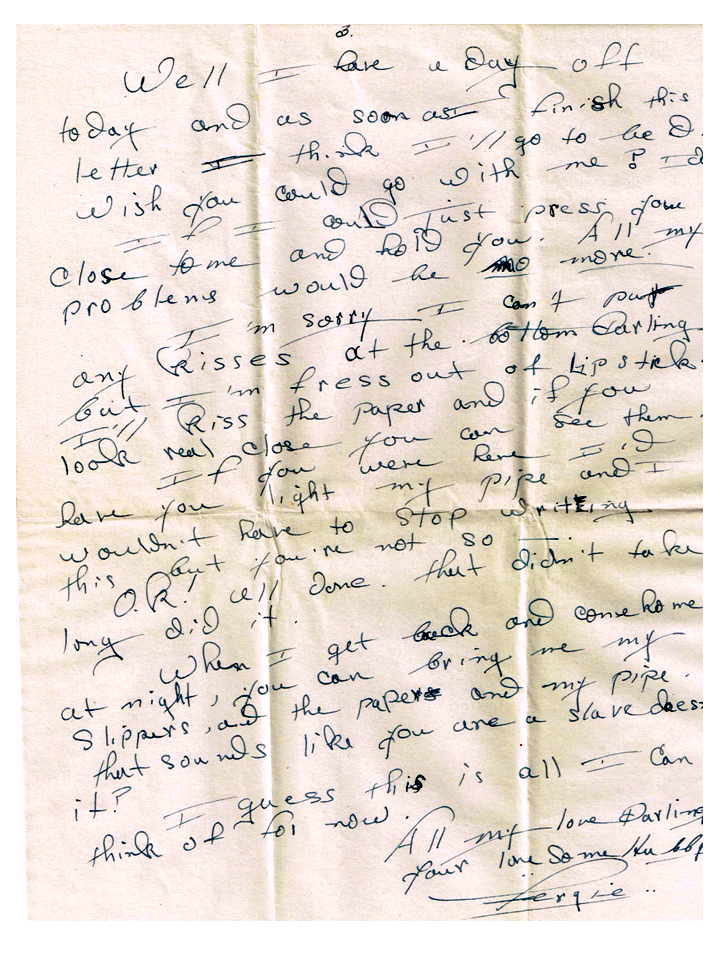 3.
Well I have a day off
today and as soon as I finish this
letter I think I'll go to be D.
wish you could go with me? I d
If I could just press you
close to me and hold you. All my
problems would be no more.
I'm sorry I can't put
any Kisses at the bottom Darling
but I'm fress out of Lipstick
I'll Kiss the paper and if you
look real close you can see them.
If you were here I'd
have you light my pipe and I
wouldn't have to stop writing
this but you're not so I
O.K! all done. that didn't take
long did it.
When I get back and come home
at night, you can bring me my
Slippers, and the papers and my pipe.
that sounds like you are a slave doesn
it?
I guess this is all I can
think of for now.
All my love Darling
your lonesome Hubby
Fergie..